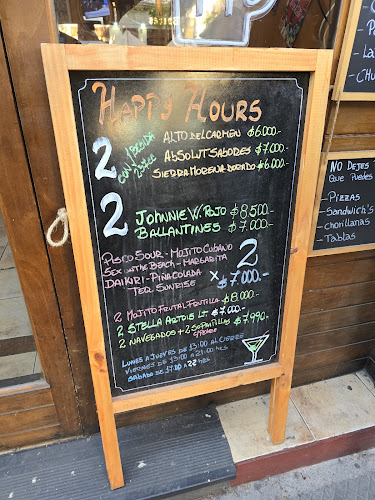 Happy Hours
2
CON/BEBIDA
220cc
ALTO DEL CARMEN $6.000.-
ABSOLUT SABORES $7.000.-
SIERRA MORENA DORADO $6.000.-
2
JOHNNIE W. ROJO $8.500.-
BALLANTINES $7.000.-
PISCO SOUR - MOJITO CUBANO
SEX ON THE BEACH - MARGARITA
DAIKIRI - PIÑA COLADA
TEQ SUNRISE
2
x $7.000.-
2 MOJITO FRUTAL FRUTILLA $8.000.-
2 STELLA ARTOIS LT $7.000.-
2 NAVEGADOS + 2 SOPAIPILLAS $7.990.-
LUNES A JUEVES DE 13:00 AL CIERRE
VIERNES DE 13:00 A 21:00 HRS
SABADO DE 17:00 A 22 HRS
NO DEJES
Que Puedes
PIZZAS
SANDWICH'S
CHORRILLANAS
TABLAS